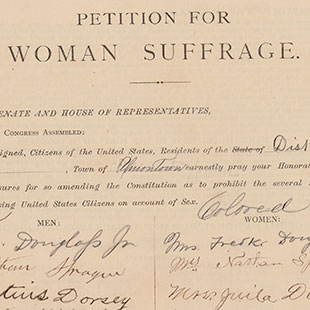 PETITION FOR
WOMAN SUFFRAGE.
ENATE AND HOUSE OF REPRESENTATIVES,
CONGRESS ASSEMBLED:
igned, Citizens of the United States, Residents of the State of Dist
, Town of Uniontown earnestly pray your Honora
ures for so amending the Constitution as to prohibit the several
ing United States Citizens on account of Sex.
Colored
MEN: WOMEN:
Douglass Jr Mrs. Fredk Dou
Sprague Mrs Nathan Sp
Dorsey Mrs D